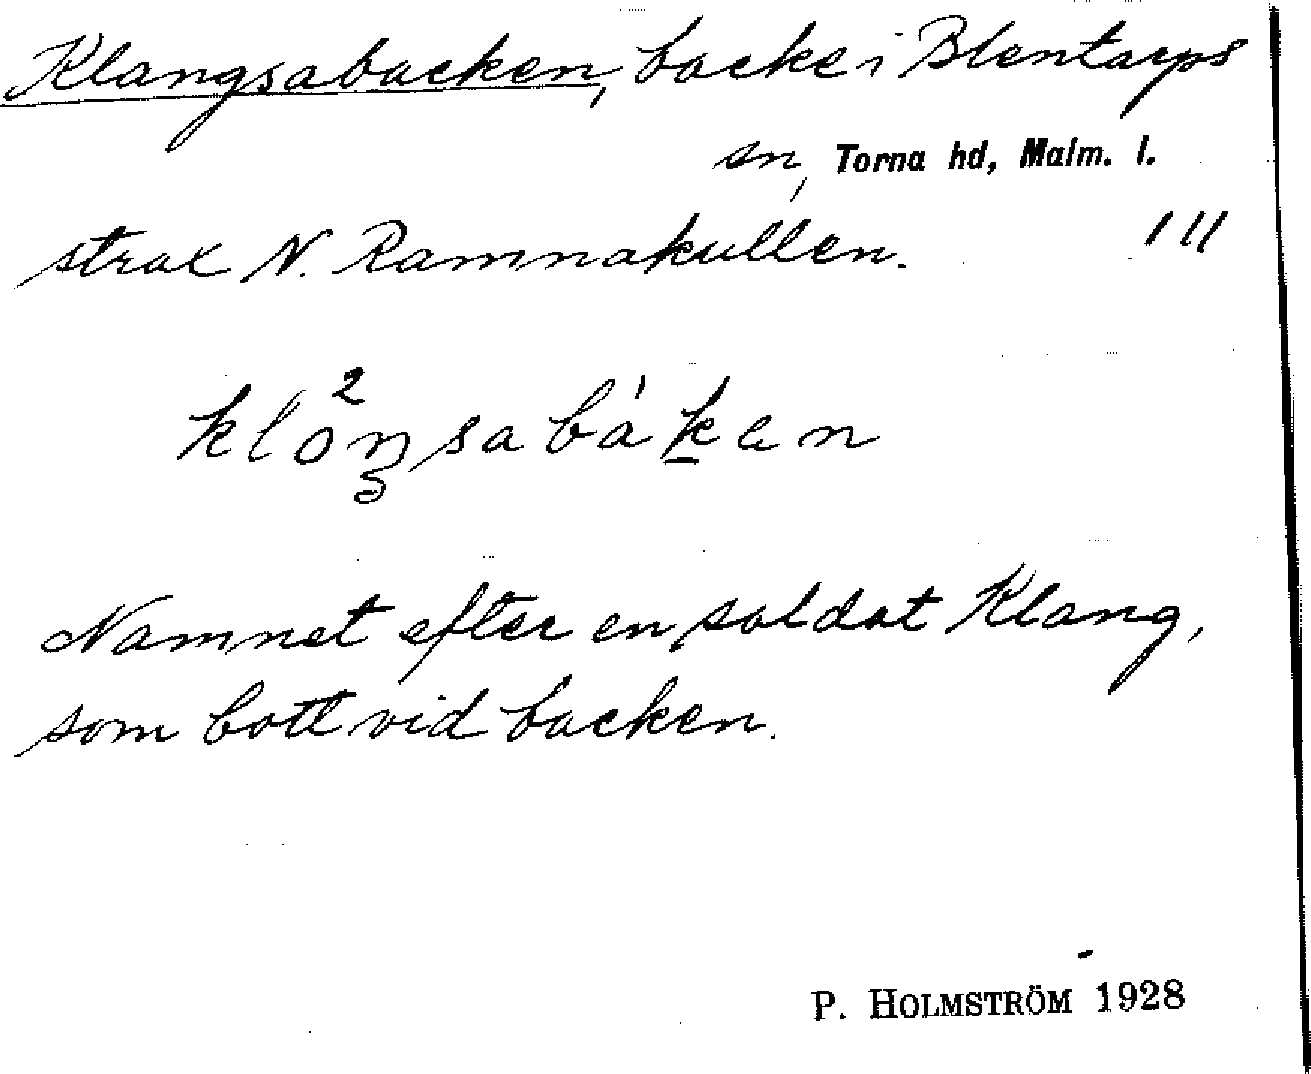 Klangsabacken, backe i Blentarps
sn, Torna hd, Malm. l.
strax N. Ramnakullen. 111
klo²ŋsabáken
Namnet efter en soldat Klang,
som bott vid backen.
P. HOLMSTRÖM 1928